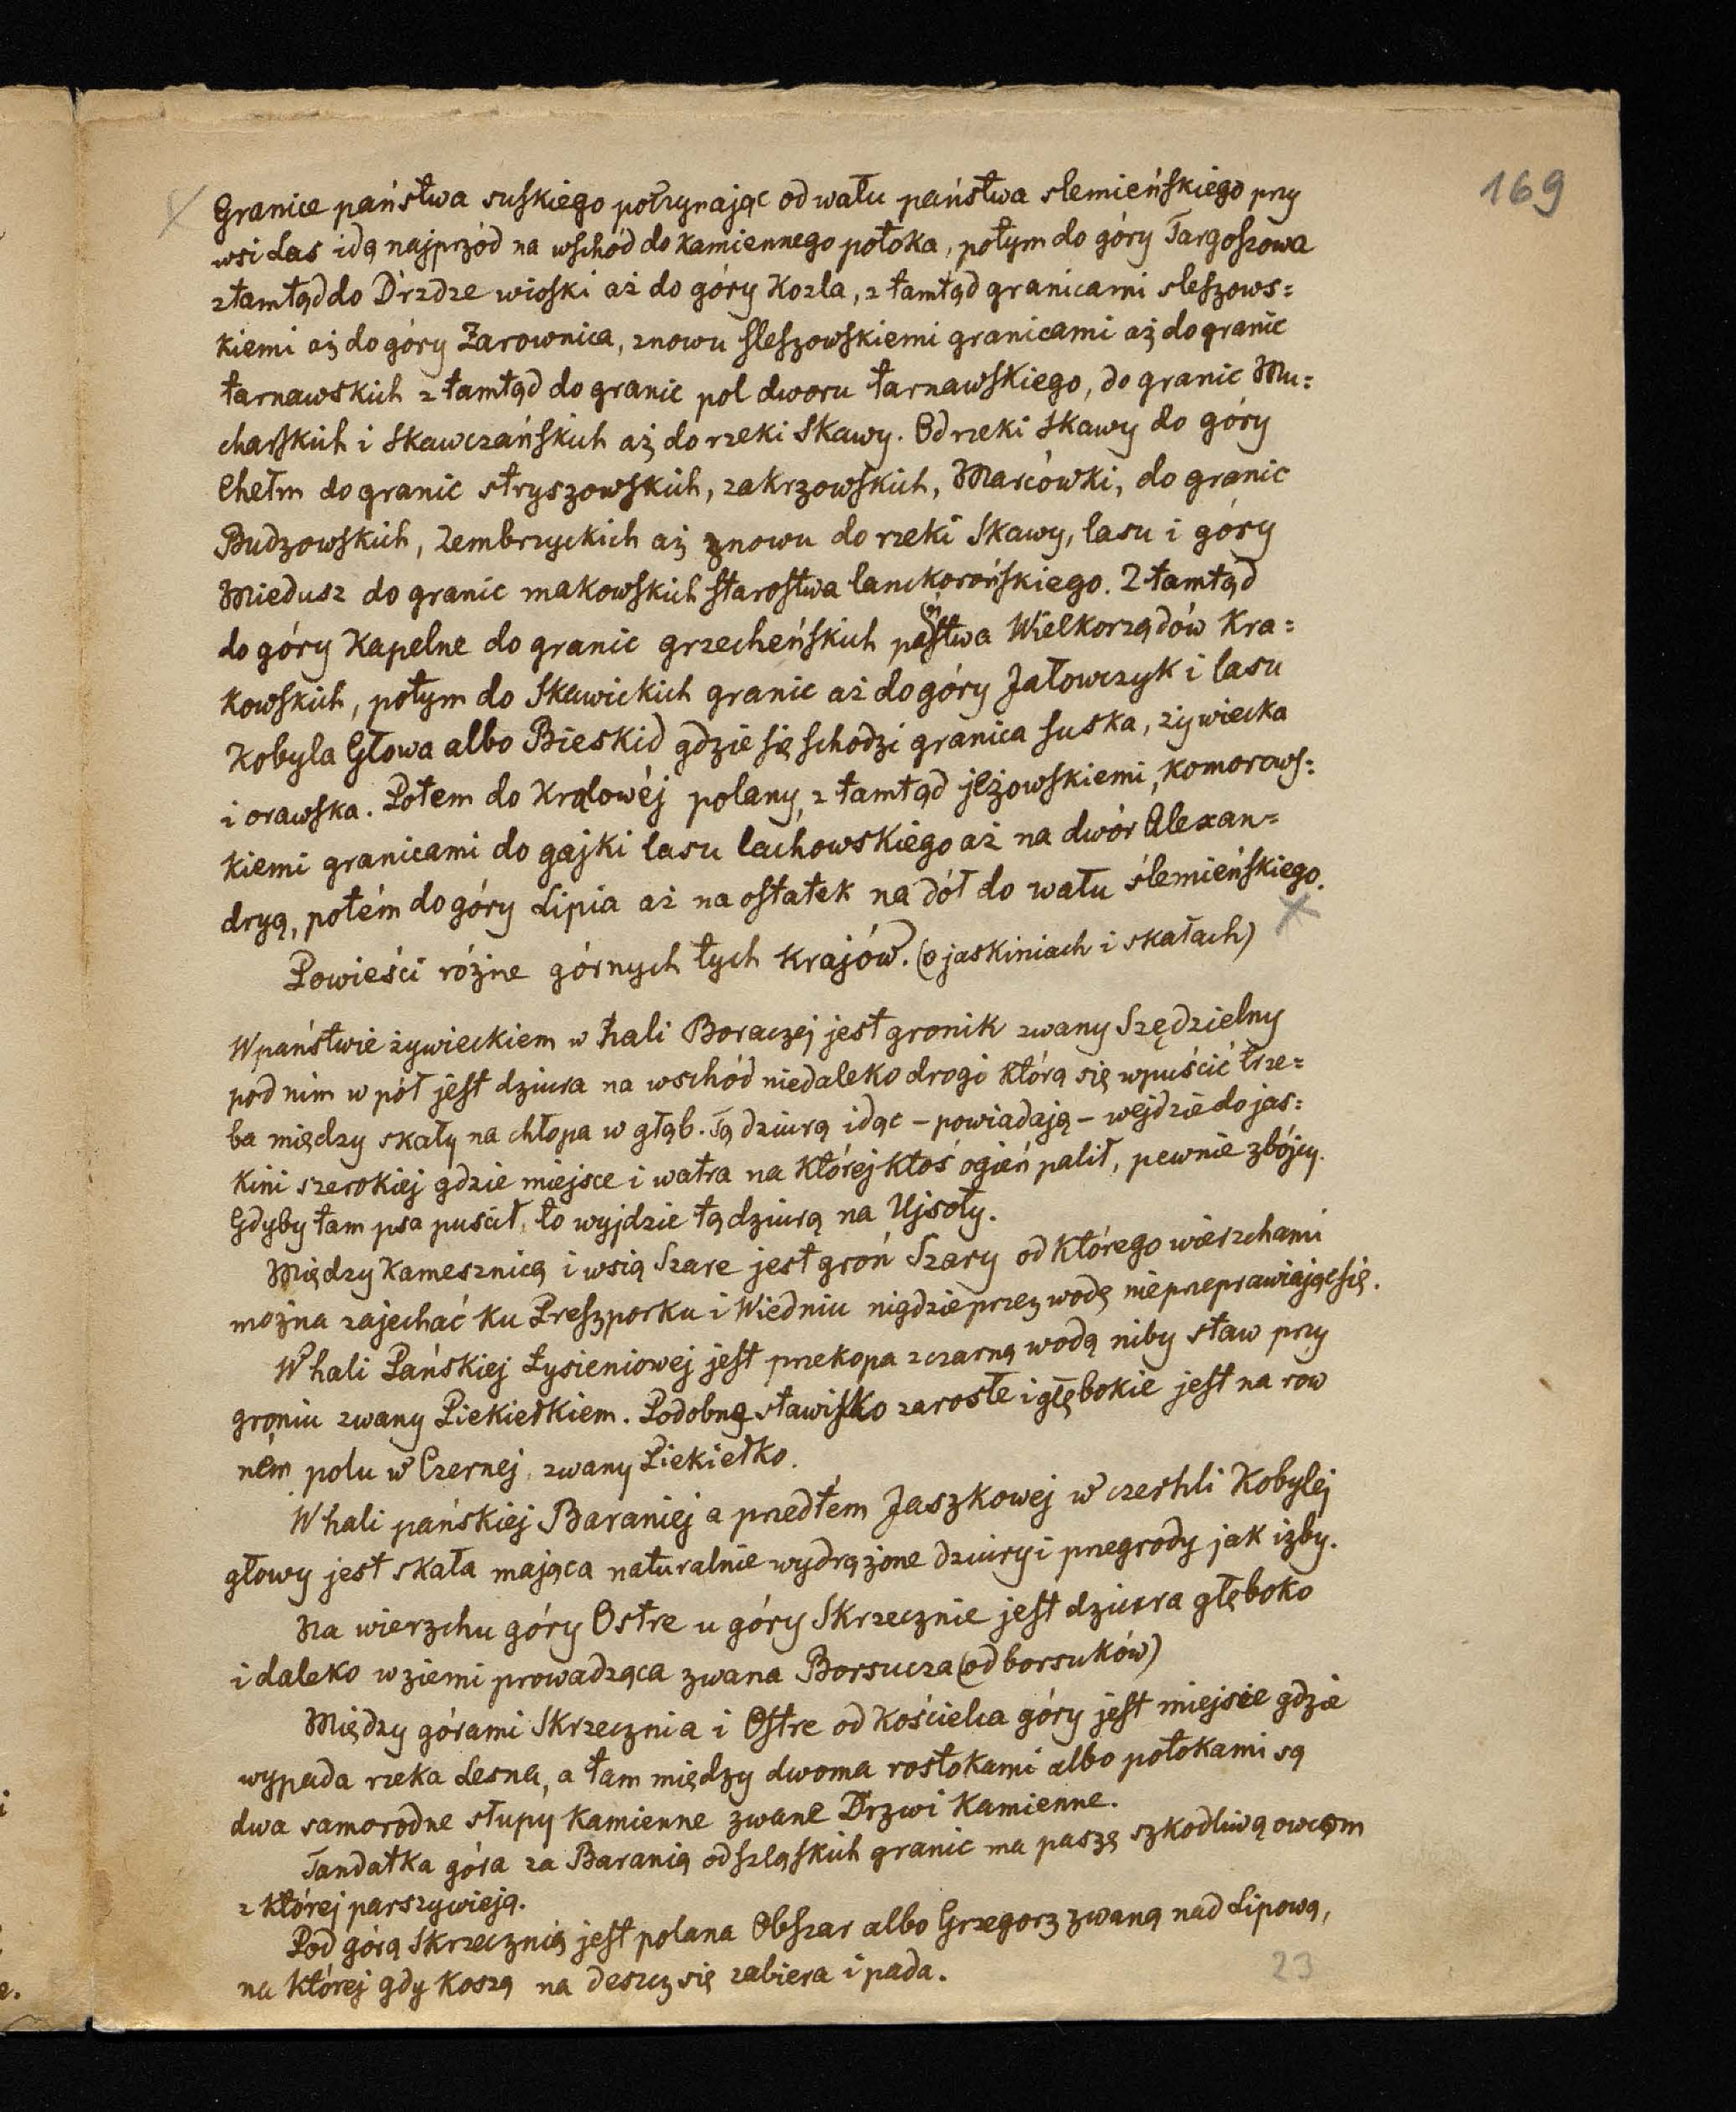 169
Granice państwa suskiego potrzynając od wału państwa slemieńskiego przy
wsi Las idą najprzód na wschód do kamiennego potoka, potym do góry Targoszowa
z tamtąd do Drzdze wioski aż do góry Kozla, z tamtąd granicami sleszows=
kiemi aż do góry Żarownica, znowu sleszowskiemi granicami aż do granic
tarnawskich z tamtąd do granic pol dworu tarnawskiego, do granic Mu=
charskich i Skawczańskich aż do rzeki Skawy. Od rzeki Skawy do góry
Chełm do granic stryszowskich, zakrzowskich, Marcówki, do granic
Budzowskich, Zembrzyckich aż znowu do rzeki Skawy, lasu i góry
Miedusz do granic makowskich starostwa lanckorońskiego. Z tamtąd
do góry Kapelne do granic grzecheńskich pa(ń)stwa Wielkorządów Kra=
kowskich, potym do Skawickich granic aż do góry Jałowczyk i lasu
Kobyla Głowa albo Bieskid gdzie się schodzi granica suska, żywiecka
i orawska. Potem do Krolowéj polany, z tamtąd jeżowskiemi, komorows=
kiemi granicami do gajki lasu lachowskiego aż na dwór Alexan=
dryą, potém do góry Lipia aż na ostatek na dół do wału ślemieńskiego.
Powieści różne górnych tych krajów. (o jaskiniach i skałach)
W państwie żywieckiem w hali Boraczej jest gronik zwany Szędzielny
pod nim w pół jest dziura na wschód niedaleko drogi którą się wpuścić trze=
ba między skały na chłopa w głąb. Tą dziurą idąc – powiadają – wejdzie do jas=
kini szerokiej gdzie miejsce i watra na której ktoś ogień palił, pewnie zbójcy.
Gdyby tam psa puścił, to wyjdzie tą dziurą na Ujsoły.
Między Kamesznicą i wsią Szare jest groń Szary od którego wierzchami
można zajechać ku Preszporku i Wiedniu nigdzie przez wodę nie przeprawiając się.
W hali Pańskiej Łysieniowej jest przekopa z czarną wodą niby staw przy
groniu zwany Piekiełkiem. Podobne stawisko zarosłe i głębokie jest na row
ném polu w Czernej, zwany Piekiełko.
W hali pańskiej Baraniej a przedtem Jaszkowej w czerhli Kobylej
głowy jest skała mająca naturalnie wydrążone dziury i przegrody jak izby.
Na wierzchu góry Ostre u góry Skrzecznie jest dziura głęboko
i daleko w ziemi prowadząca zwana Borsucza (od borsuków)
Między górami Skrzecznia i Ostre od Kościelca góry jest miejsce gdzie
wypada rzeka Lesna, a tam między dwoma rostokami albo potokami są
dwa samorodne słupy kamienne zwane Drzwi Kamienne.
Tandatka góra za Baranią od szląskich granic ma paszę szkodliwą owcom
z której parszywieją.
Pod górą Skrzecznią jest polana Obszar albo Grzegorz zwaną nad Lipową,
na której gdy koszą na deszcz się zabiera i pada.
23